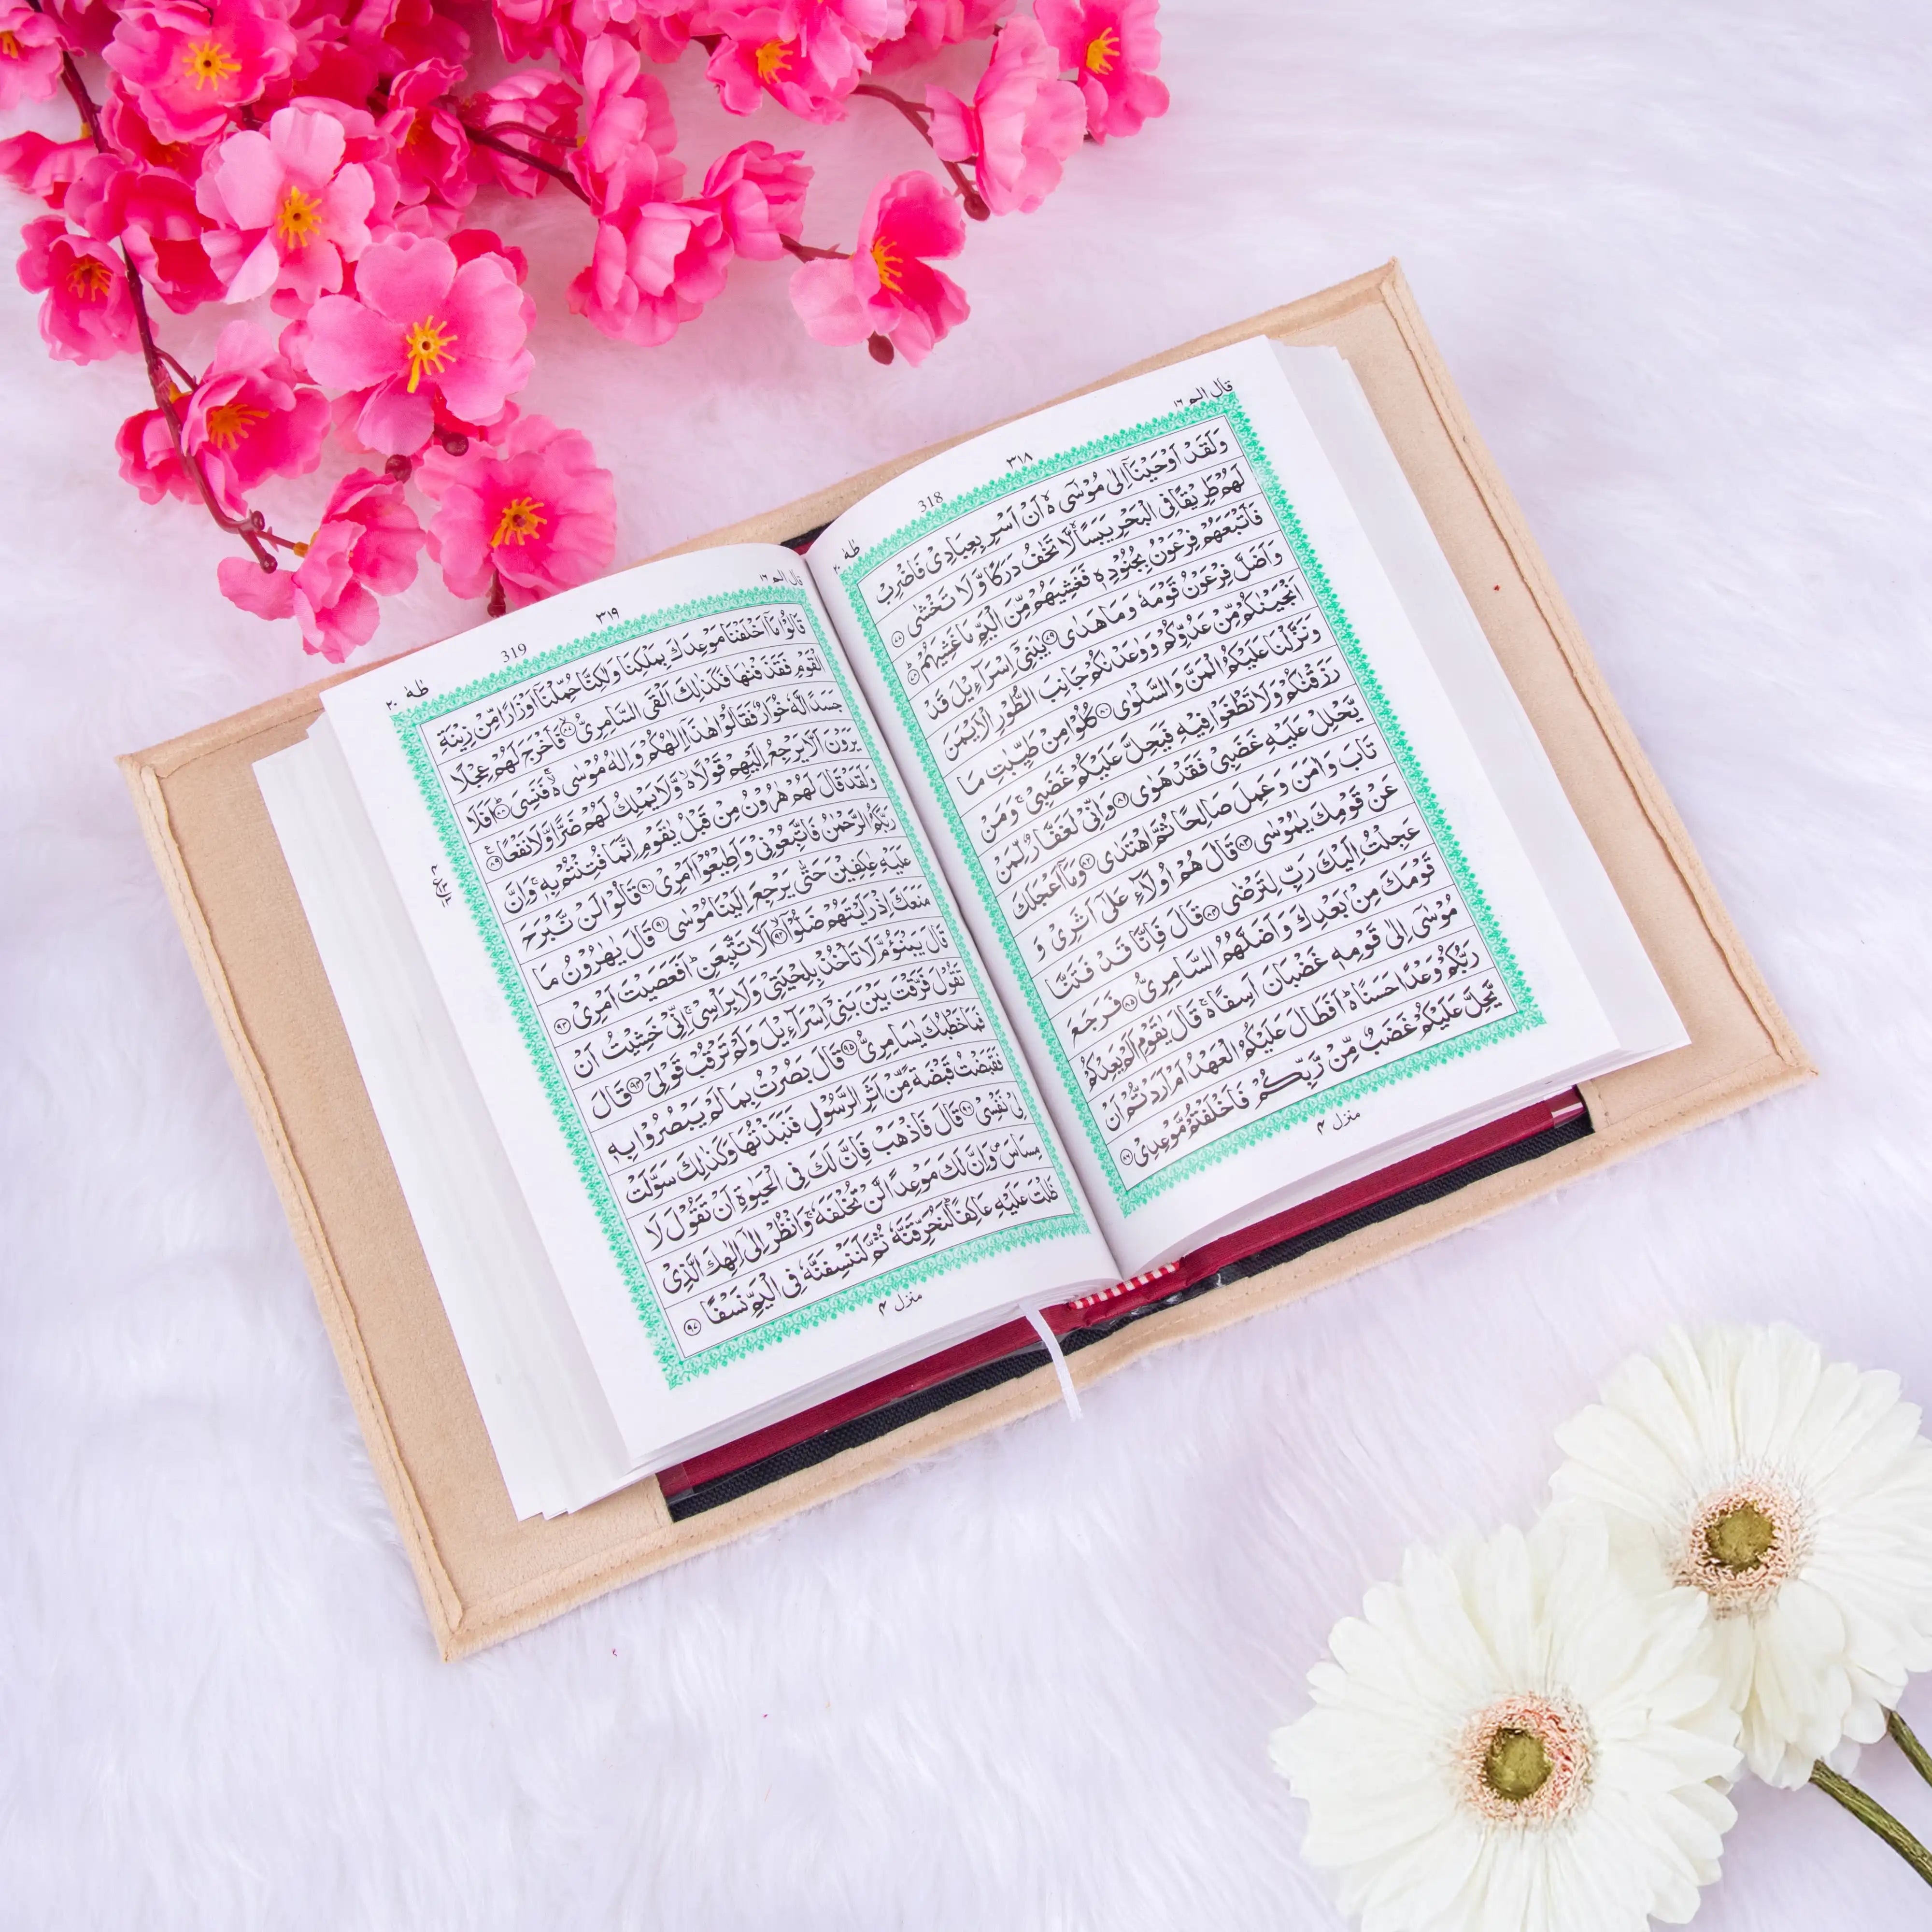 قال الم ١٦
٣١٨
318
طٰهٰ ٢٠
وَلَقَدْ اَوْحَيْنَاۤ اِلٰى مُوْسٰۤى ۙ اَنْ اَسْرِ بِعِبَادِيْ فَاضْرِبْ
لَهُمْ طَرِيْقًا فِي الْبَحْرِ يَبَسًا ۙ لَّا تَخٰفُ دَرَكًا وَّلَا تَخْشٰى ﴿٧٧﴾
فَاَتْبَعَهُمْ فِرْعَوْنُ بِجُنُوْدِهٖ فَغَشِيَهُمْ مِّنَ الْيَمِّ مَا غَشِيَهُمْ ﴿٧٨﴾
وَاَضَلَّ فِرْعَوْنُ قَوْمَهٗ وَمَا هَدٰى ﴿٧٩﴾ يٰبَنِيْۤ اِسْرَآءِيْلَ قَدْ
اَنْجَيْنٰكُمْ مِّنْ عَدُوِّكُمْ وَوٰعَدْنٰكُمْ جَانِبَ الطُّوْرِ الْاَيْمَنَ
وَنَزَّلْنَا عَلَيْكُمُ الْمَنَّ وَالسَّلْوٰى ﴿٨٠﴾ كُلُوْا مِنْ طَيِّبٰتِ مَا
رَزَقْنٰكُمْ وَلَا تَطْغَوْا فِيْهِ فَيَحِلَّ عَلَيْكُمْ غَضَبِيْ ۚ وَمَنْ
يَّحْلِلْ عَلَيْهِ غَضَبِيْ فَقَدْ هَوٰى ﴿٨١﴾ وَاِنِّيْ لَغَفَّارٌ لِّمَنْ
تَابَ وَاٰمَنَ وَعَمِلَ صَالِحًا ثُمَّ اهْتَدٰى ﴿٨٢﴾ وَمَاۤ اَعْجَلَكَ
عَنْ قَوْمِكَ يٰمُوْسٰى ﴿٨٣﴾ قَالَ هُمْ اُولَآءِ عَلٰۤى اَثَرِيْ وَ
عَجِلْتُ اِلَيْكَ رَبِّ لِتَرْضٰى ﴿٨٤﴾ قَالَ فَاِنَّا قَدْ فَتَنَّا
قَوْمَكَ مِنْ بَعْدِكَ وَاَضَلَّهُمُ السَّامِرِيُّ ﴿٨٥﴾ فَرَجَعَ
مُوْسٰۤى اِلٰى قَوْمِهٖ غَضْبَانَ اَسِفًا ۚ قَالَ يٰقَوْمِ اَلَمْ يَعِدْكُمْ
رَبُّكُمْ وَعْدًا حَسَنًا ۚ اَفَطَالَ عَلَيْكُمُ الْعَهْدُ اَمْ اَرَدْتُّمْ اَنْ
يَّحِلَّ عَلَيْكُمْ غَضَبٌ مِّنْ رَّبِّكُمْ فَاَخْلَفْتُمْ مَّوْعِدِيْ ﴿٨٦﴾
منزل ٤
قال الم ١٦
٣١٩
319
طٰهٰ ٢٠
قَالُوْا مَاۤ اَخْلَفْنَا مَوْعِدَكَ بِمَلْكِنَا وَلٰكِنَّا حُمِّلْنَاۤ اَوْزَارًا مِّنْ زِيْنَةِ
الْقَوْمِ فَقَذَفْنٰهَا فَكَذٰلِكَ اَلْقَى السَّامِرِيُّ ﴿٨٧﴾ فَاَخْرَجَ لَهُمْ عِجْلًا
جَسَدًا لَّهٗ خُوَارٌ فَقَالُوْا هٰذَاۤ اِلٰهُكُمْ وَاِلٰهُ مُوْسٰى ۬ فَنَسِيَ ﴿٨٨﴾ اَفَلَا
يَرَوْنَ اَلَّا يَرْجِعُ اِلَيْهِمْ قَوْلًا ۙ وَّلَا يَمْلِكُ لَهُمْ ضَرًّا وَّلَا نَفْعًا ﴿٨٩﴾
وَلَقَدْ قَالَ لَهُمْ هٰرُوْنُ مِنْ قَبْلُ يٰقَوْمِ اِنَّمَا فُتِنْتُمْ بِهٖ ۚ وَاِنَّ
رَبَّكُمُ الرَّحْمٰنُ فَاتَّبِعُوْنِيْ وَاَطِيْعُوْۤا اَمْرِيْ ﴿٩٠﴾ قَالُوْا لَنْ نَّبْرَحَ
عَلَيْهِ عٰكِفِيْنَ حَتّٰى يَرْجِعَ اِلَيْنَا مُوْسٰى ﴿٩١﴾ قَالَ يٰهٰرُوْنُ مَا
مَنَعَكَ اِذْ رَاَيْتَهُمْ ضَلُّوْۤا ﴿٩٢﴾ اَلَّا تَتَّبِعَنِ ؕ اَفَعَصَيْتَ اَمْرِيْ ﴿٩٣﴾
قَالَ يَبْنَؤُمَّ لَا تَاْخُذْ بِلِحْيَتِيْ وَلَا بِرَاْسِيْ ۚ اِنِّيْ خَشِيْتُ اَنْ
تَقُوْلَ فَرَّقْتَ بَيْنَ بَنِيْۤ اِسْرَآءِيْلَ وَلَمْ تَرْقُبْ قَوْلِيْ ﴿٩٤﴾ قَالَ
فَمَا خَطْبُكَ يٰسَامِرِيُّ ﴿٩٥﴾ قَالَ بَصُرْتُ بِمَا لَمْ يَبْصُرُوْا بِهٖ
فَقَبَضْتُ قَبْضَةً مِّنْ اَثَرِ الرَّسُوْلِ فَنَبَذْتُهَا وَكَذٰلِكَ سَوَّلَتْ
لِيْ نَفْسِيْ ﴿٩٦﴾ قَالَ فَاذْهَبْ فَاِنَّ لَكَ فِي الْحَيٰوةِ اَنْ تَقُوْلَ لَا
مِسَاسَ ۪ وَاِنَّ لَكَ مَوْعِدًا لَّنْ تُخْلَفَهٗ ۚ وَانْظُرْ اِلٰۤى اِلٰهِكَ الَّذِيْ
ظَلْتَ عَلَيْهِ عَاكِفًا ؕ لَنُحَرِّقَنَّهٗ ثُمَّ لَنَنْسِفَنَّهٗ فِي الْيَمِّ نَسْفًا ﴿٩٧﴾
منزل ٤